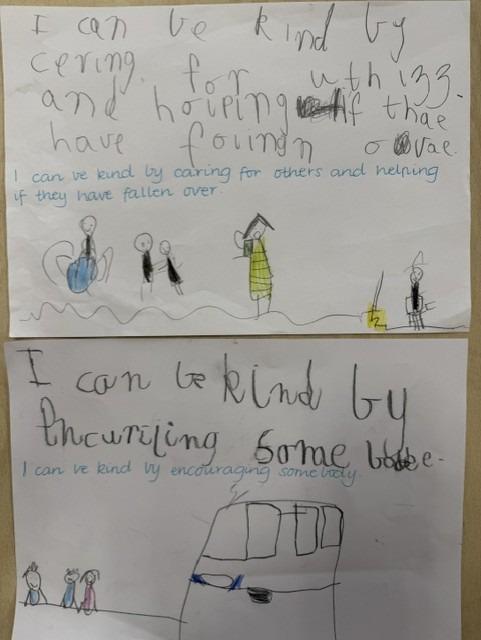 I can be kind by
cering. for uthizz.
and holping if thae
have foiingn ovae.
I can be kind by caring for others and helping
if they have fallen over.
I can be kind by
Encuriiing some bode.
I can be kind by encouraging somebody.